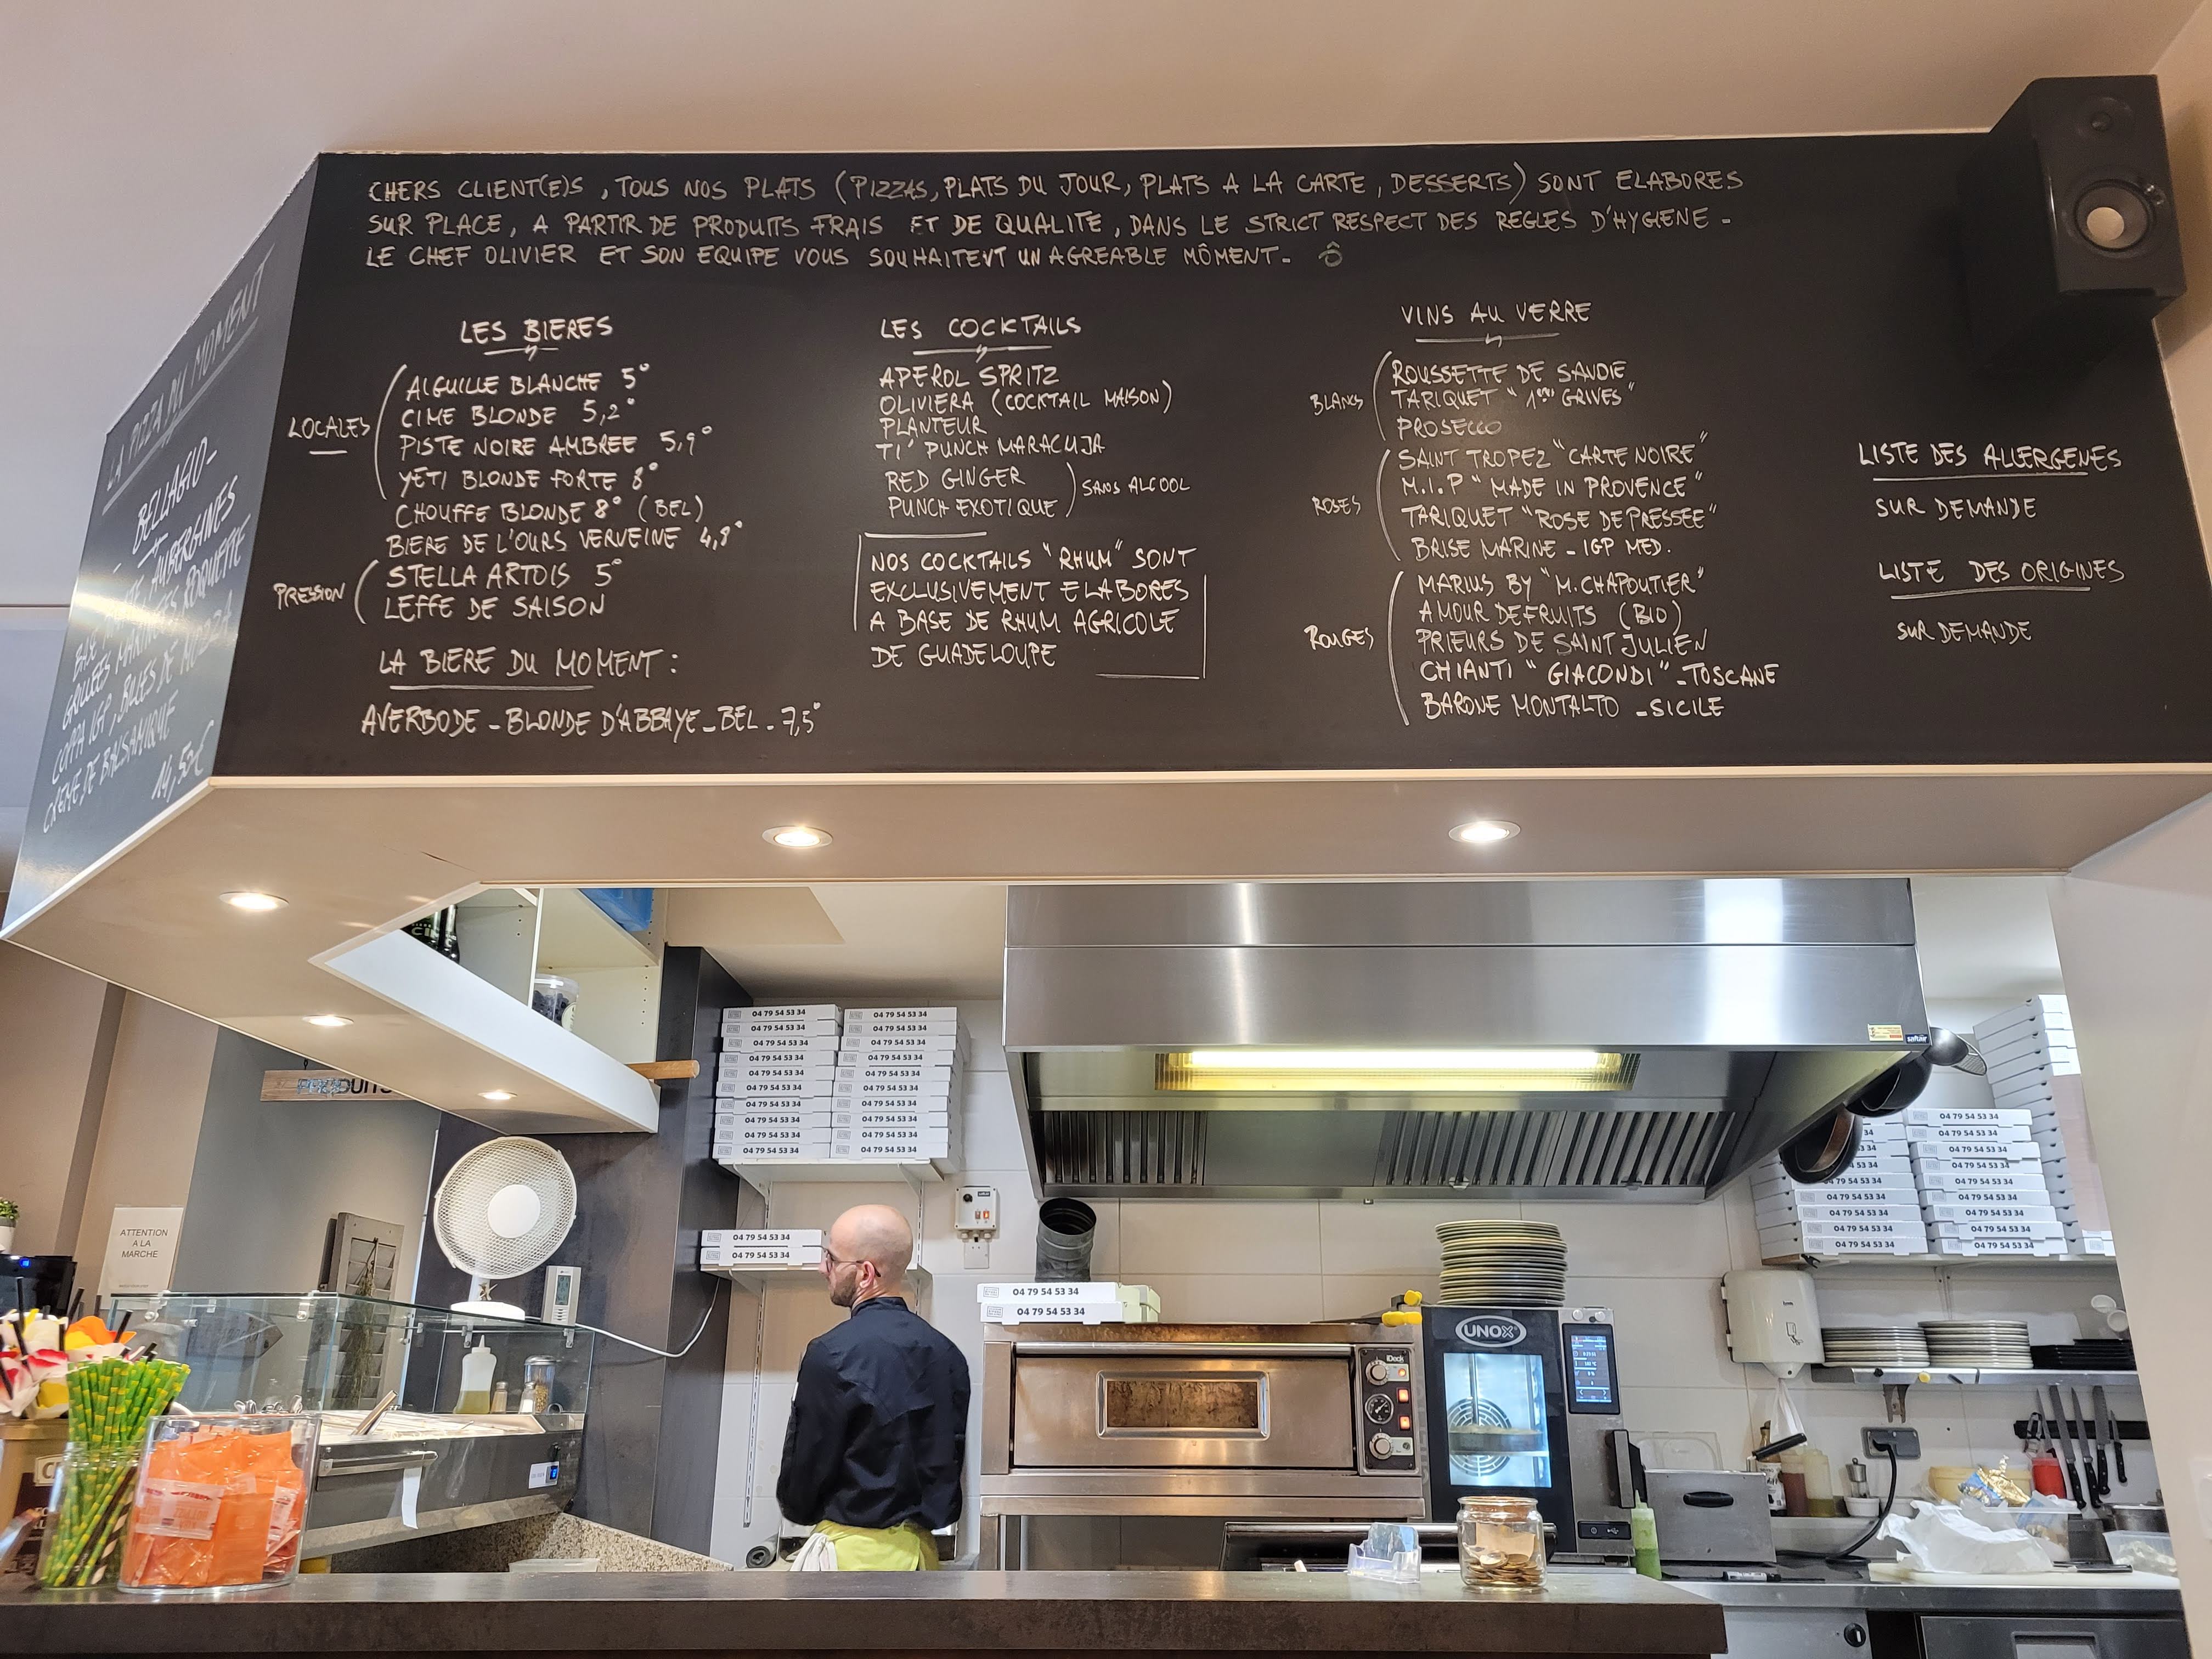 CHERS CLIENT(E)S , TOUS NOS PLATS (PIZZAS, PLATS DU JOUR, PLATS A LA CARTE , DESSERTS) SONT ELABORES
SUR PLACE , A PARTIR DE PRODUITS FRAIS ET DE QUALITE , DANS LE STRICT RESPECT DES REGLES D'HYGIENE -
LE CHEF OLIVIER ET SON EQUIPE VOUS SOUHAITENT UN AGREABLE MÔMENT - Ô
LA PIZZA DU MOMENT
BELLAGIO -
AUBERGINES
GRILLEES MARINEES ROQUETTE
COPPA IGP, BILLES DE MOZZA
CREME DE BALSAMIQUE
14,50€
LES BIERES
LOCALES
AIGUILLE BLANCHE 5°
CIME BLONDE 5,2°
PISTE NOIRE AMBREE 5,9°
YETI BLONDE FORTE 8°
CHOUFFE BLONDE 8° (BEL)
BIERE DE L'OURS VERVEINE 4,8°
PRESSION
STELLA ARTOIS 5°
LEFFE DE SAISON
LA BIERE DU MOMENT :
AVERBODE - BLONDE D'ABBAYE - BEL - 7,5°
LES COCKTAILS
APEROL SPRITZ
OLIVIERA (COCKTAIL MAISON)
PLANTEUR
TI' PUNCH MARACUJA
RED GINGER
PUNCH EXOTIQUE
SANS ALCOOL
NOS COCKTAILS "RHUM" SONT
EXCLUSIVEMENT ELABORES
A BASE DE RHUM AGRICOLE
DE GUADELOUPE
VINS AU VERRE
BLANCS
ROUSSETTE DE SAVOIE
TARIQUET "1ères GRIVES"
PROSECCO
ROSES
SAINT TROPEZ "CARTE NOIRE"
M.I.P "MADE IN PROVENCE"
TARIQUET "ROSE DE PRESSEE"
BRISE MARINE - IGP MED.
ROUGES
MARIUS BY "M. CHAPOUTIER"
AMOUR DE FRUITS (BIO)
PRIEURS DE SAINT JULIEN
CHIANTI "GIACONDI" - TOSCANE
BARONE MONTALTO - SICILE
LISTE DES ALLERGENES
SUR DEMANDE
LISTE DES ORIGINES
SUR DEMANDE
04 79 54 53 34
ATTENTION
A LA
MARCHE
saftair
iDeck
UNOX